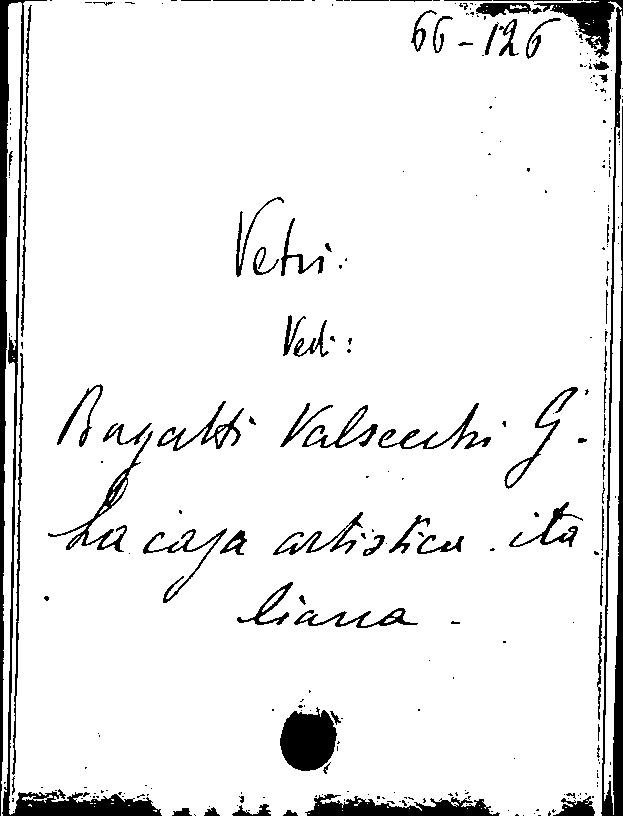 66-126
Vetri.
Vedi:
Bagatti Valsecchi G.
La casa artistica ita
liana.